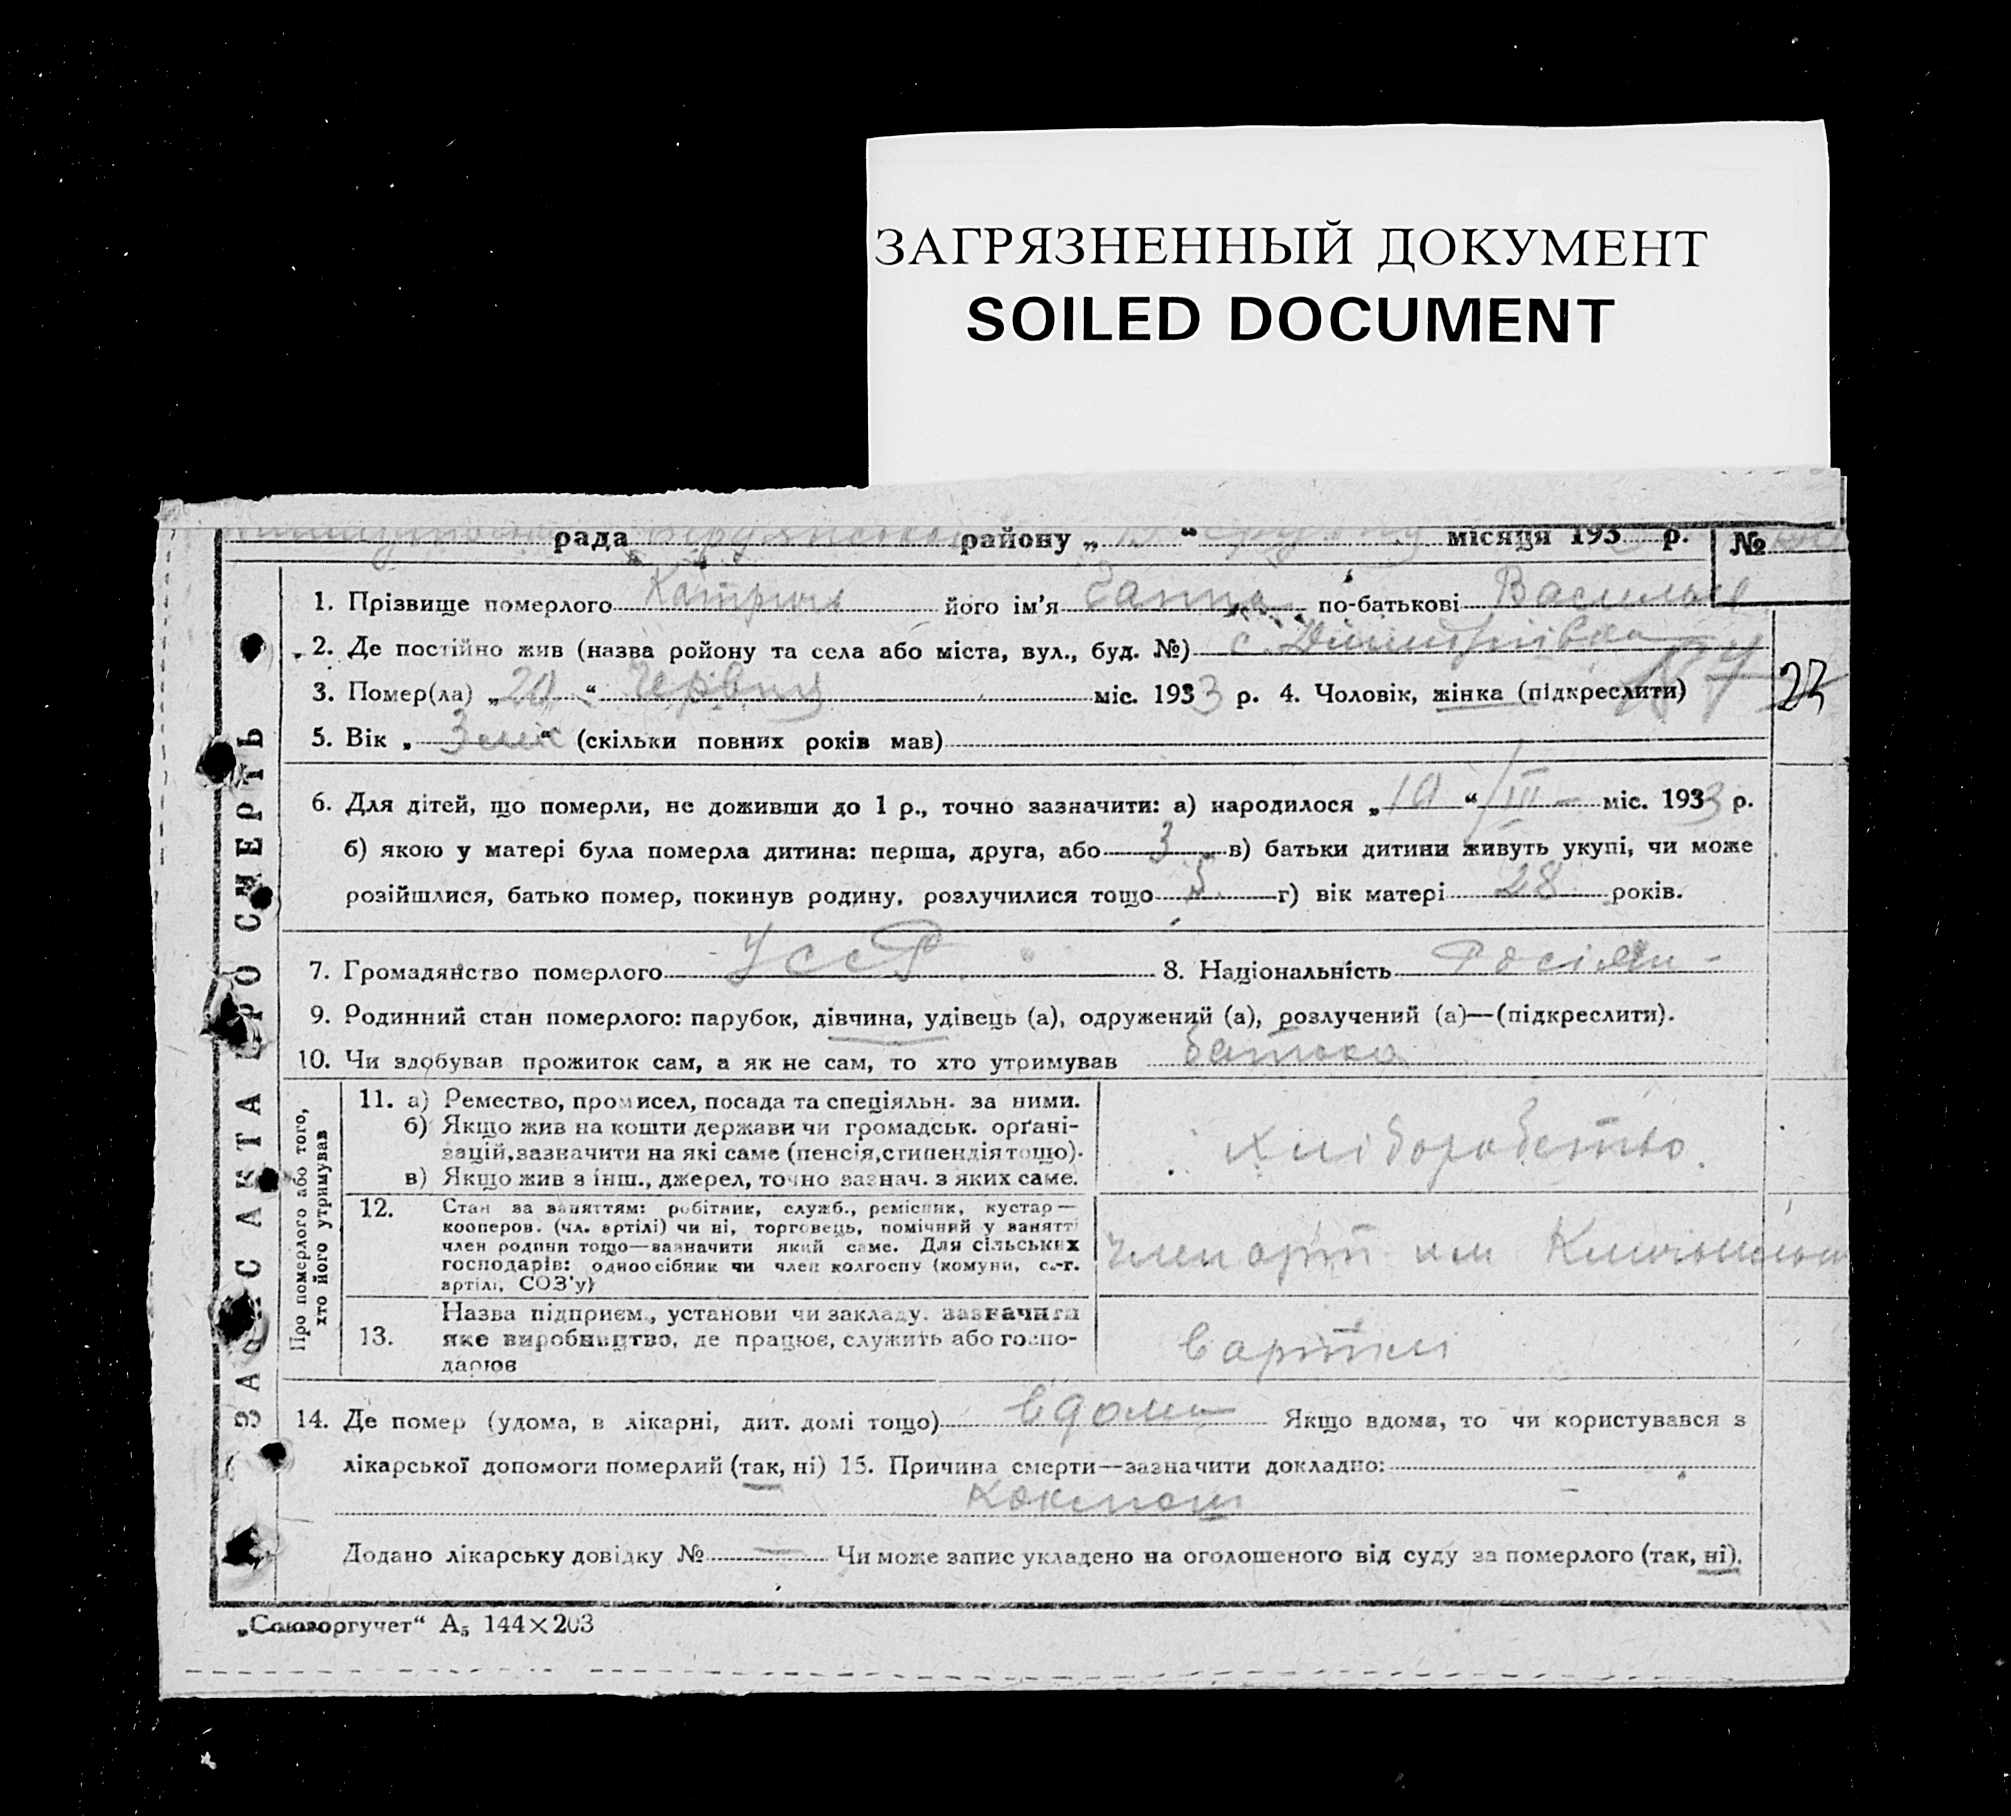 ЗАГРЯЗНЕННЫЙ ДОКУМЕНТ
SOILED DOCUMENT
рада району „ “ місяця 193 р. №
1. Прізвище померлого його ім'я Ганна по-батькові
2. Де постійно жив (назва ройону та села або міста, вул., буд. №) с.
3. Помер(ла) „20“ Червня міс. 1933 р. 4. Чоловік, жінка (підкреслити) 23
5. Вік „3 міс“ (скільки повних років мав)
6. Для дітей, що померли, не доживши до 1 р., точно зазначити: а) народилося „10“ III міс. 1933 р.
б) якою у матері була померла дитина: перша, друга, або 3 в) батьки дитини живуть укупі, чи може
розійшлися, батько помер, покинув родину, розлучилися тощо г) вік матері 28 років.
7. Громадянство померлого УССР 8. Національність Росіян
9. Родинний стан померлого: парубок, дівчина, удівець (а), одружений (а), розлучений (а)—(підкреслити).
10. Чи здобував прожиток сам, а як не сам, то хто утримував батько
ЗАПИС АКТА ПРО СМЕРТЬ
Про померлого або того, хто його утримував
11. а) Ремество, промисел, посада та спеціяльн. за ними.
б) Якщо жив на кошти держави чи громадськ. орґані-
зацій, зазначити на які саме (пенсія, стипендія тощо).
в) Якщо жив з інш., джерел, точно зазнач. з яких саме.
хліборобство
12. Стан за заняттям: робітник, служб., ремісник, кустар—
кооперов. (чл. артілі) чи ні, торговець, помічний у занятті
член родини тощо—зазначити який саме. Для сільських
господарів: одноосібник чи член колгоспу (комуни, с.-г.
артілі, СОЗ'у)
член арт им
13. Назва підприєм., установи чи закладу. зазначити
яке виробництво, де працює, служить або госпо-
дарює
в артілі
14. Де помер (удома, в лікарні, дит. домі тощо) вдома Якщо вдома, то чи користувався з
лікарської допомоги померлий (так, ні) 15. Причина смерти—зазначити докладно:
Коклюш
Додано лікарську довідку № — Чи може запис укладено на оголошеного від суду за померлого (так, ні).
„Союзоргучет“ А₅ 144×203